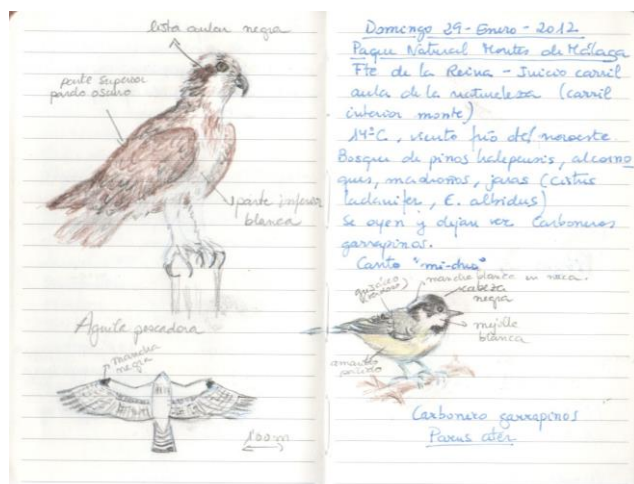 lista aular negra
parte superior
pardo oscuro
parte inferior
blanca
Aguila pescadora
mancha
negra
100m
Domingo 29-Enero-2012
Paque Natural Montes de Málaga
Fte de la Reina - Inicio carril
aula de la naturaleza (carril
interior monte)
14ºC, viento frío del noroeste.
Bosque de pinos halepensis, alcorno
ques, madroños, jaras (cistus
ladanifer, C. albidus)
Se oyen y dejan ver Carboneros
garrapinos.
Canto "mi-chu"
mancha blanca en nuca
cabeza
negra
mejilla
blanca
amarillo
Carbonero garrapinos
Parus ater